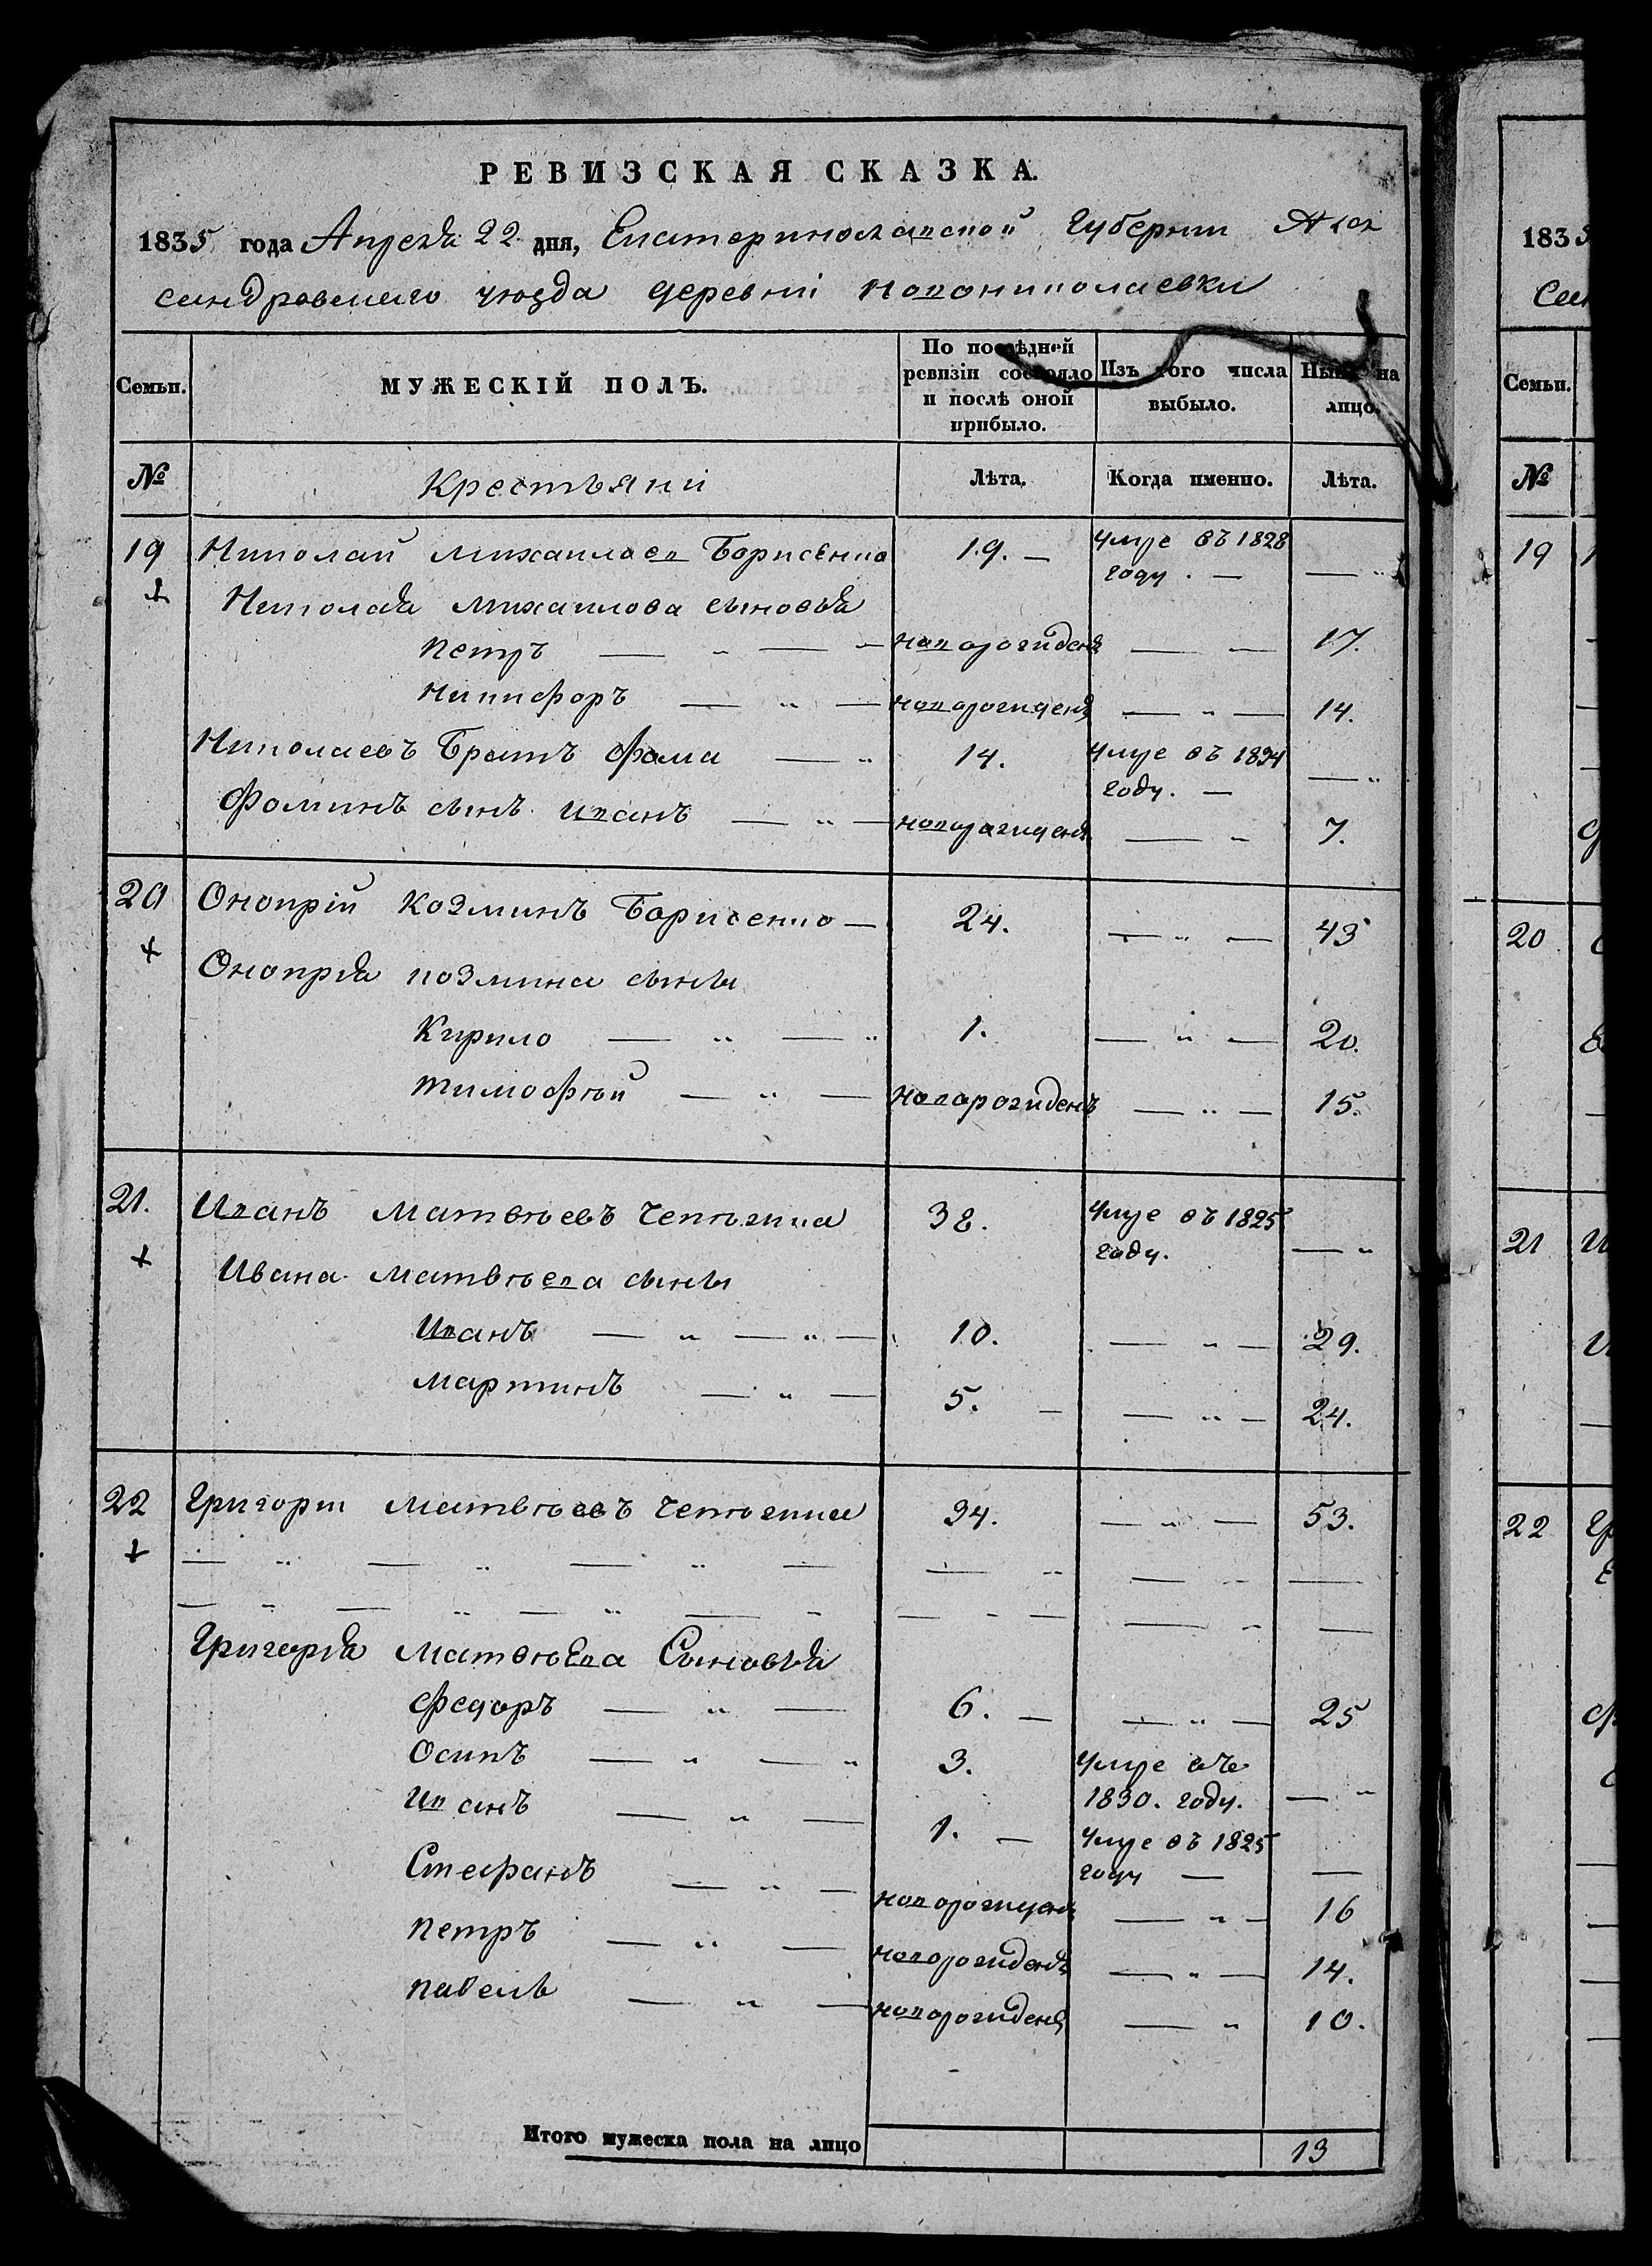 РЕВИЗСКАЯ СКАЗКА.
1835 года Апреля 22 дня, Екатеринославской Губернии Алек
сандровскаго уюзда деревнi новониколаевки
Семьи. МУЖЕСКІЙ ПОЛЪ. По послѣдней ревизіи состояло и послѣ оной прибыло. Изъ того числа выбыло. Нынѣ на лицо.
№ Крестьянi Лѣта. Когда именно. Лѣта.
19 Николай михаилаев Борисенко 19. — умре въ 1828 году. — —
Николая михаилова сыновья
петръ — — новорожденъ — — 17.
никифоръ — — новорожденъ — — 14.
Николаевъ Братъ фома — 14. умре въ 1834 году. — —
фоминъ сынъ иванъ — — новорожденъ — 7.
20 Онопрiй козминъ Борисенко — 24. — — 43
Онопрiя козмина сыны
Кирило — — 1. — — 20.
тимофюй — — новорожденъ — — 15.
21. Иванъ матвюевъ Чепюгина 38. умре въ 1825 году. —
Ивана матвюева сыны
Иванъ — — — 10. — — 29.
мартинъ — — 5. — — — 24.
22 Григорiи матвюевъ Чепюгина 34. — — 53.
Григорiя матвюева Сыновья
федоръ — — 6. — — — 25
Осипъ — — 3. умре въ 1830. году. —
Иванъ — — 1. — умре въ 1825 году — —
Стефанъ — — новорожденъ — — 16
петръ — — новорожденъ — — 14.
павелъ — — новорожденъ — 10.
Итого мужеска пола на лицо 13
1835
Сем
Семьи.
№
19
20
21
22